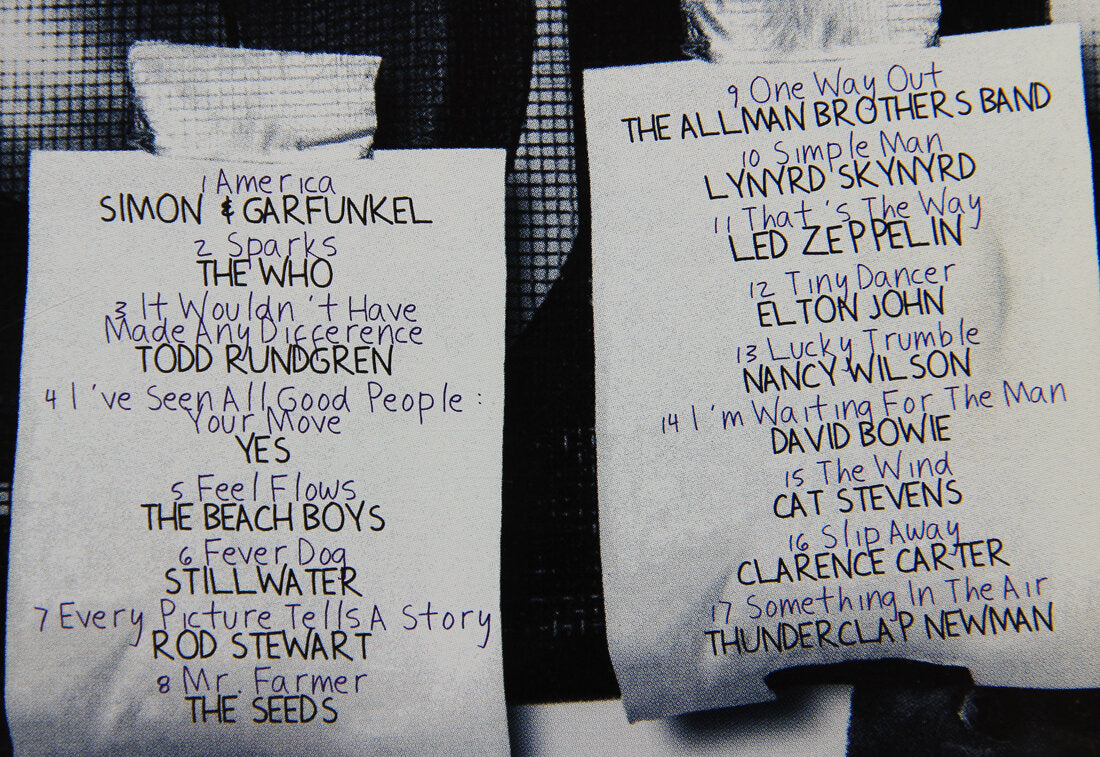 1 America
SIMON & GARFUNKEL
2 Sparks
THE WHO
3 It Wouldn't Have
Made Any Difference
TODD RUNDGREN
4 I've Seen All Good People:
Your Move
YES
5 Feel Flows
THE BEACH BOYS
6 Fever Dog
STILLWATER
7 Every Picture Tells A Story
ROD STEWART
8 Mr. Farmer
THE SEEDS
9 One Way Out
THE ALLMAN BROTHERS BAND
10 Simple Man
LYNYRD SKYNYRD
11 That's The Way
LED ZEPPELIN
12 Tiny Dancer
ELTON JOHN
13 Lucky Trumble
NANCY WILSON
14 I'm Waiting For The Man
DAVID BOWIE
15 The Wind
CAT STEVENS
16 Slip Away
CLARENCE CARTER
17 Something In The Air
THUNDERCLAP NEWMAN